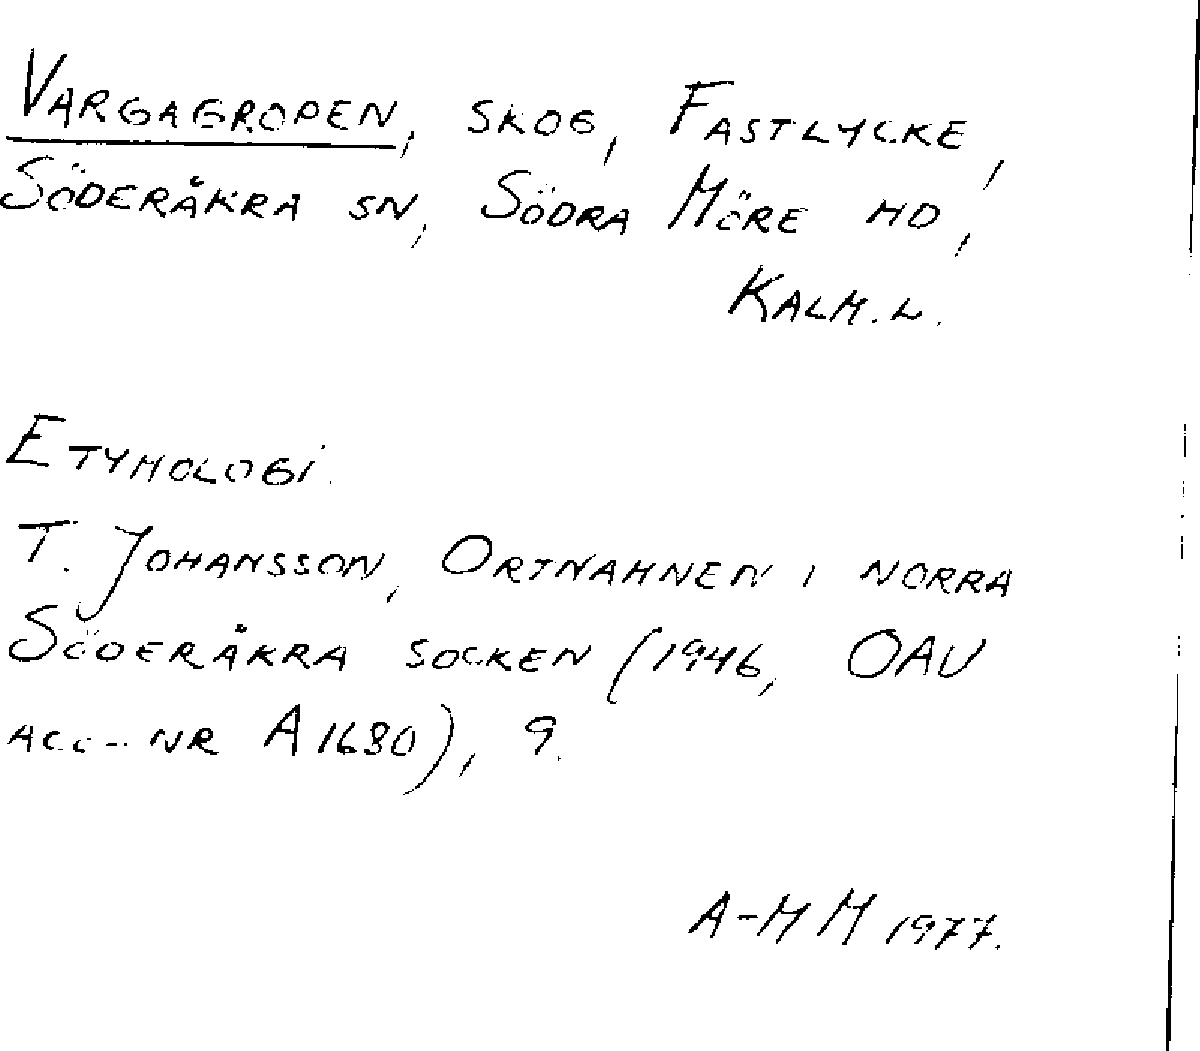 VARGAGROPEN, SKOG, FASTLYCKE,
SÖDERÅKRA SN, SÖDRA MÖRE HD,
KALM. L.
ETYMOLOGI.
T. JOHANSSON, ORTNAMNEN I NORRA
SÖDERÅKRA SOCKEN (1946, OAU
ACC-NR A1680), 9.
A-MM 1977.